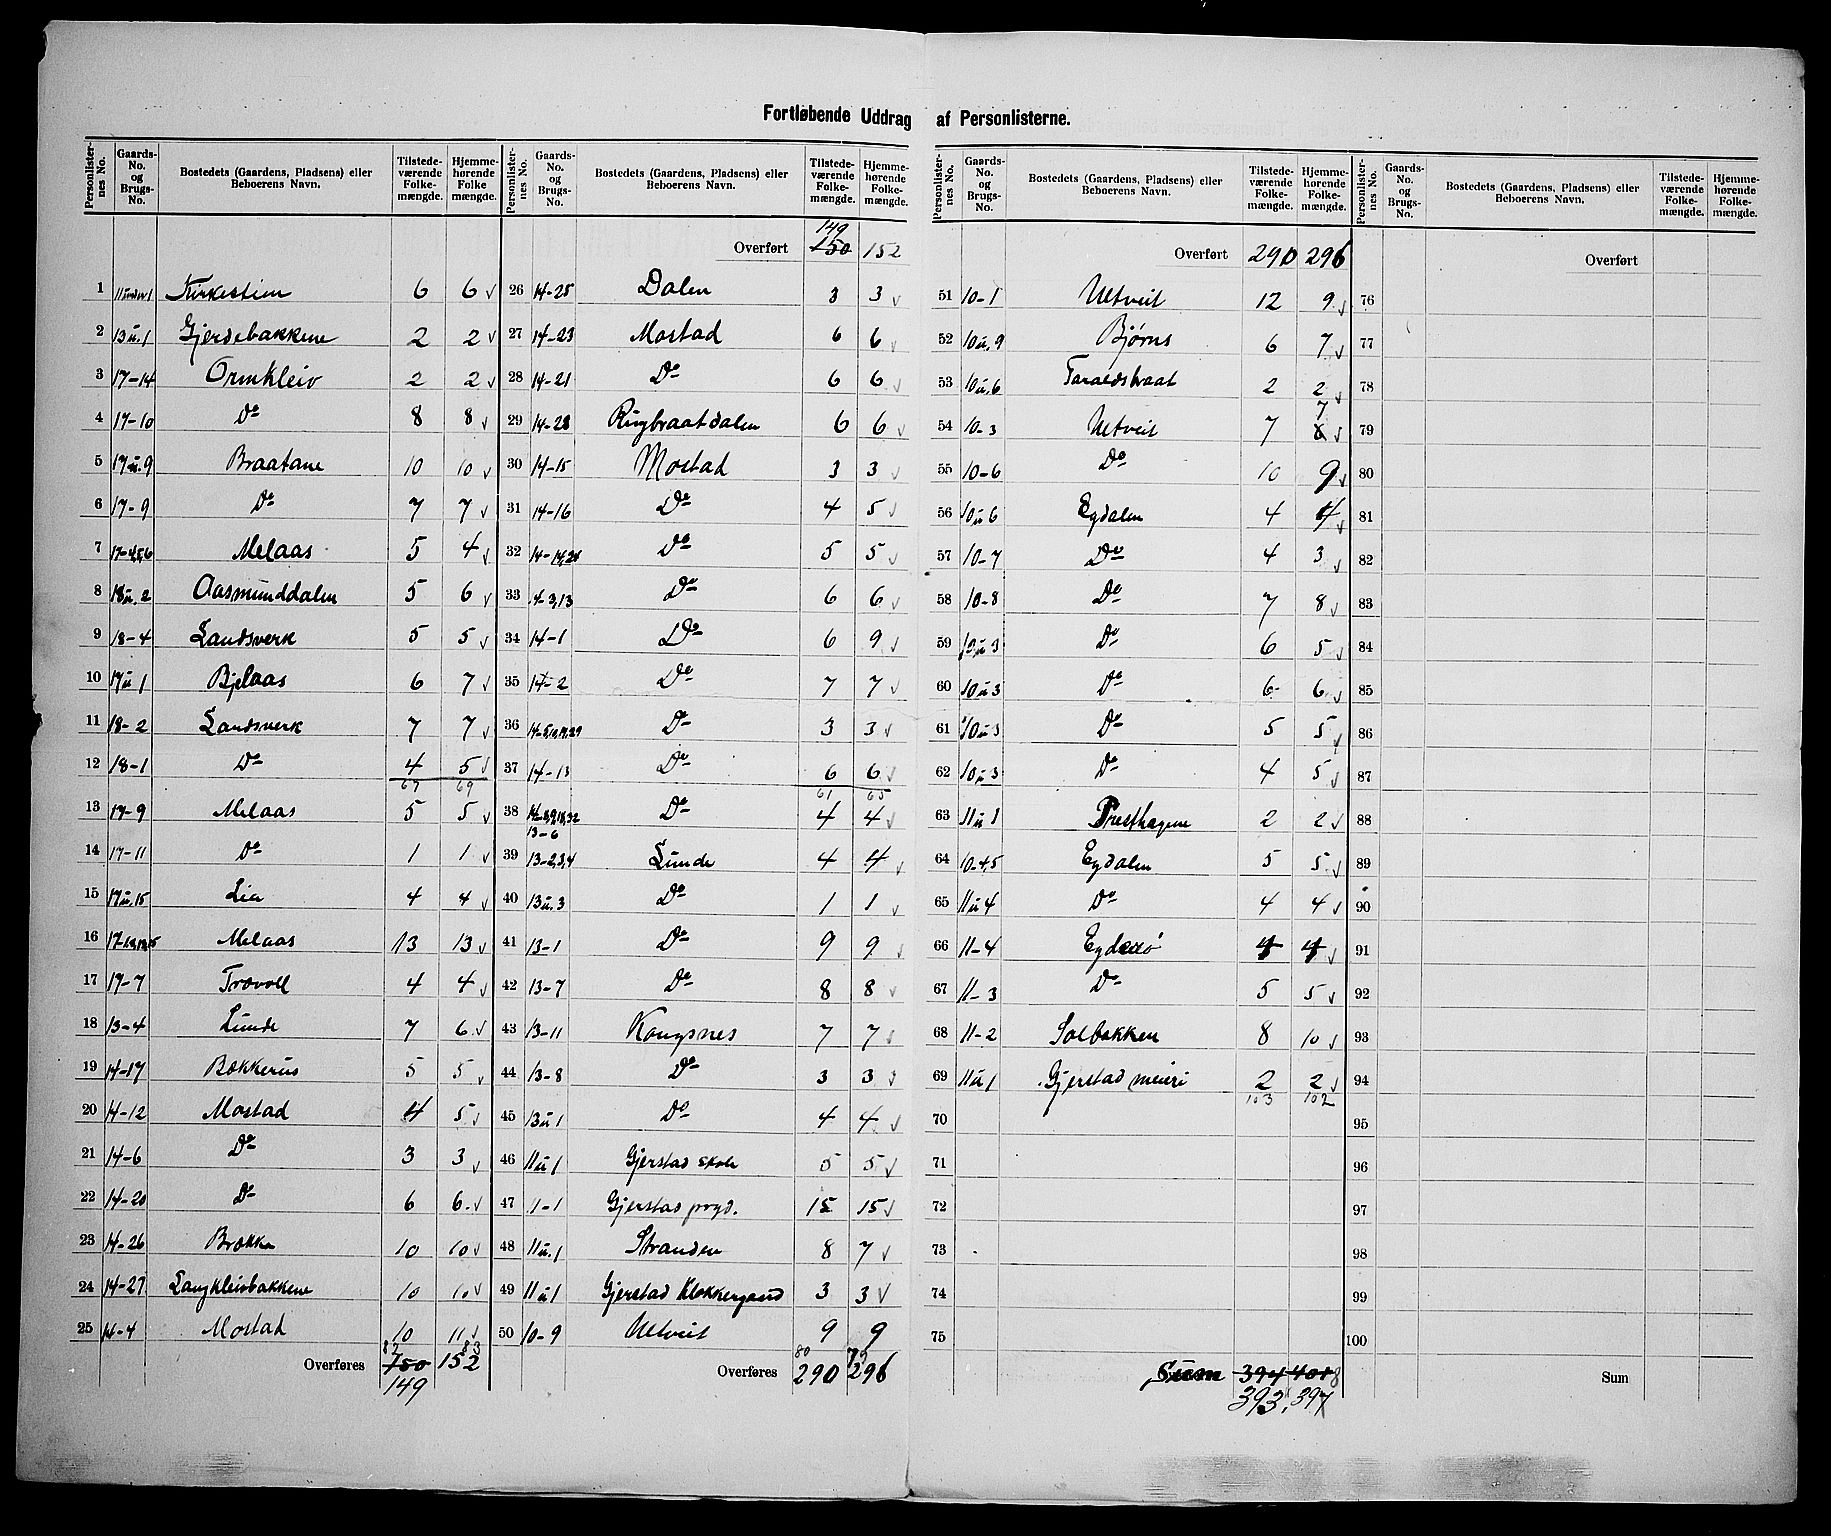 Fortløbende Uddrag af Personlisterne.
Personlisternes No. Gaards-No. og Brugs-No. Bostedets (Gaardens, Pladsens) eller Beboerens Navn. Tilstedeværende Folkemængde. Hjemmehørende Folke mængde.
1 11 under 1 Kirkestien 6 6 v
2 13 u. 1 Gjerdebakkene 2 2 v
3 17-14 Ormkleiv 2 2 v
4 17-10 Do 8 8 v
5 17 u. 9 Braatane 10 10 v
6 17-9 Do 7 7 v
7 17-4,5,6 Melaas 5 4 v
8 18 u. 2 Aasmunddalen 5 6 v
9 18-4 Landsverk 5 5 v
10 17 u 1 Bjelaas 6 7 v
11 18-2 Landsverk 7 7 v
12 18-1 Do 4 5 v
67 69
13 17-9 Melaas 5 5 v
14 17-11 Do 1 1 v
15 17 u. 15 Lia 4 4 v
16 Melaas 13 13 v
17 17-7 Trovoll 4 4 v
18 13-4 Lunde 7 6 v
19 14-17 Bakkerus 5 5 v
20 14-12 Mostad 4 5 v
21 14-6 Do 3 3 v
22 14-20 Do 6 6 v
23 14-26 Brokka 10 10 v
24 14-27 Langkleivbakkene 10 10 v
25 14-4 Mostad 10 11 v
82 83
Overføres 150 152
149
Personlisternes No. Gaards-No. og Brugs-No. Bostedets (Gaardens, Pladsens) eller Beboerens Navn. Tilstedeværende Folkemængde. Hjemmehørende Folkemængde.
149
Overført 150 152
26 14-25 Dalen 3 3 v
27 14-23 Mostad 6 6 v
28 14-21 Do 6 6 v
29 14-28 Rugbraatdalen 6 6 v
30 14-15 Mostad 3 3 v
31 14-16 Do 4 5 v
32 14-14,24 Do 5 5 v
33 14-3,13 Do 6 6 v
34 14-1 Do 6 9 v
35 14-2 Do 7 7 v
36 Do 3 3 v
37 14-13 Do 6 6 v
61 65
38 Do 4 4 v
13-6
39 13-2,3,4 Lunde 4 4 v
40 13 u. 3 Do 1 1 v
41 13-1 Do 9 9 v
42 13-7 Do 8 8 v
43 13-11 Kongsnes 7 7 v
44 13-8 Do 3 3 v
45 13 u 1 Do 4 4 v
46 11 u 1 Gjerstad skole 5 5 v
47 1-1 Gjerstad prgd. 15 15 v
48 11 u. 1 Stranden 8 7 v
49 11 u 1 Gjerstad Klokkergaard 3 3 v
50 10-9 Ultveit 9 9
80 79
Overføres 290 296
Personlisternes No. Gaards-No. og Brugs-No. Bostedets (Gaardens, Pladsens) eller Beboerens Navn. Tilstedeværende Folkemængde. Hjemmehørende Folkemængde.
Overført 290 296
51 10-1 Ultveit 12 9 v
52 10 u. 9 Bjørns 6 7 v
53 10 u. 6 Taraldsbraat 2 2 v
7
54 10-3 Ultveit 7 8 v
55 10-6 Do 10 9 v
56 10 u 6 Egdalen 4 4 v
57 10-7 Do 4 3 v
58 10-8 Do 7 8 v
59 10 u 3 Do 6 5 v
60 10 u 3 Do 6 6 v
61 10 u 3 Do 5 5 v
62 10 u 3 Do 4 5 v
63 11 u 1 Presthagene 2 2 v
64 10-4,5 Egdalen 5 5 v
65 11 u 4 Do 4 4 v
66 11-4 4 4 v
67 11-3 Do 5 5 v
68 11-2 Solbakken 8 10 v
69 11 u 1 Gjerstad meieri 2 2 v
103 102
70
71
72
73
74
75
Sum 394 4018
393. 397
Personlisternes No. Gaards-No. og Brugs-No. Bostedets (Gaardens, Pladsens) eller Beboerens Navn. Tilstedeværende Folkemængde. Hjemmehørende Folkemængde.
Overført
76
77
78
79
80
81
82
83
84
85
86
87
88
89
90
91
92
93
94
95
96
97
98
99
100
Sum